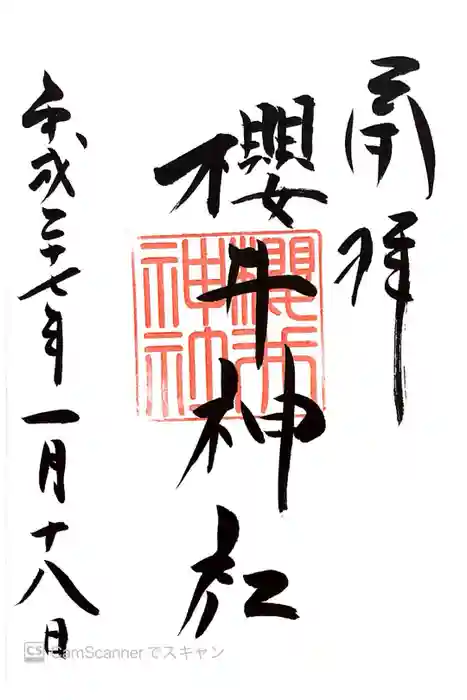 奉拝
櫻井神社
櫻井
神社
平成二十七年一月十八日
CS CamScannerでスキャン